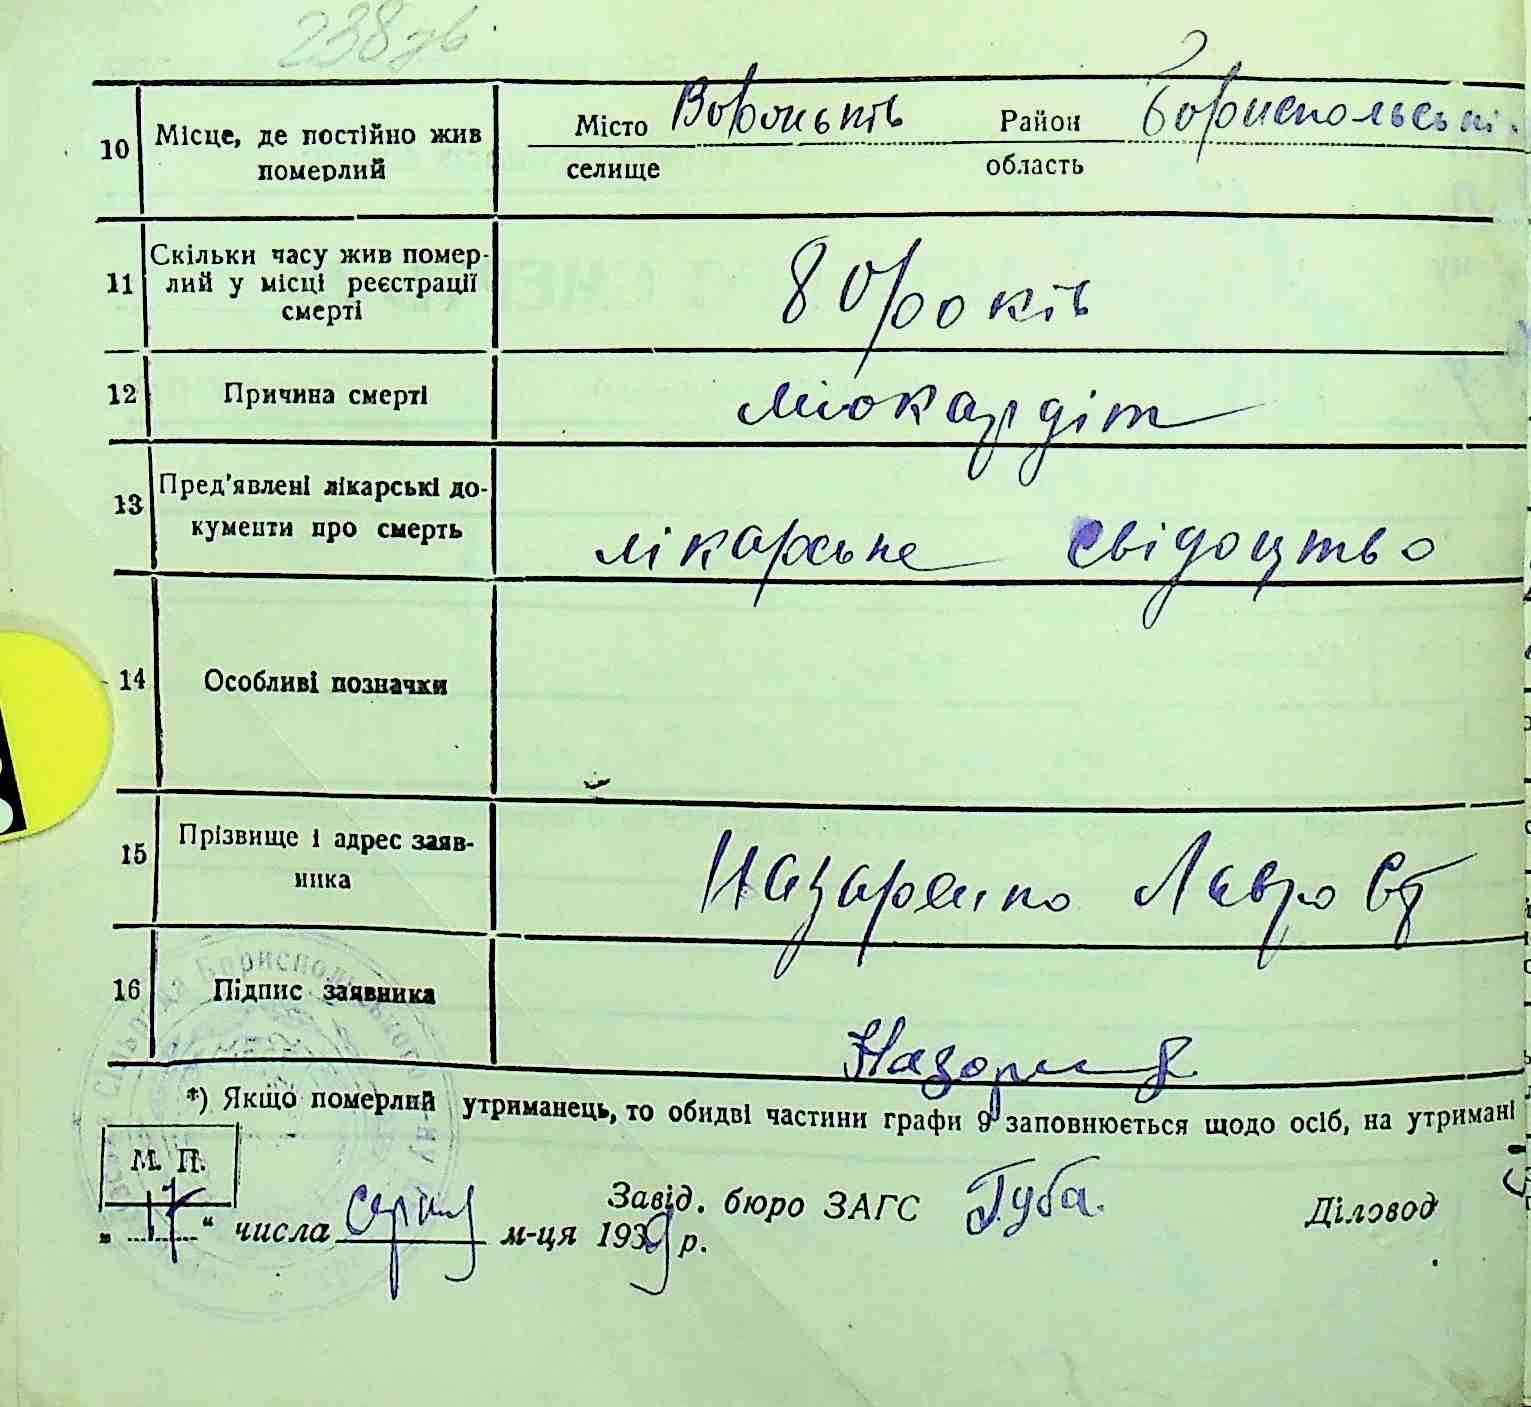 238 зв.
10 Місце, де постійно жив померлий Місто Вороньків Район Бориспольські
селище область
11 Скільки часу жив помер-
лий у місці реєстрації
смерті 80 років
12 Причина смерті міокардіт
13 Пред'явлені лікарські до-
кументи про смерть лікарське свідоцтво
14 Особливі позначки
15 Прізвище і адрес заяв-
ника Назаренко Лавро
16 Підпис заявника
*) Якщо померлий утриманець, то обидві частини графи 9 заповнюється щодо осіб, на утримані
М. П.
Завід. бюро ЗАГС Губа. Діловод
„ 17 “ числа серпня м-ця 1939 р.